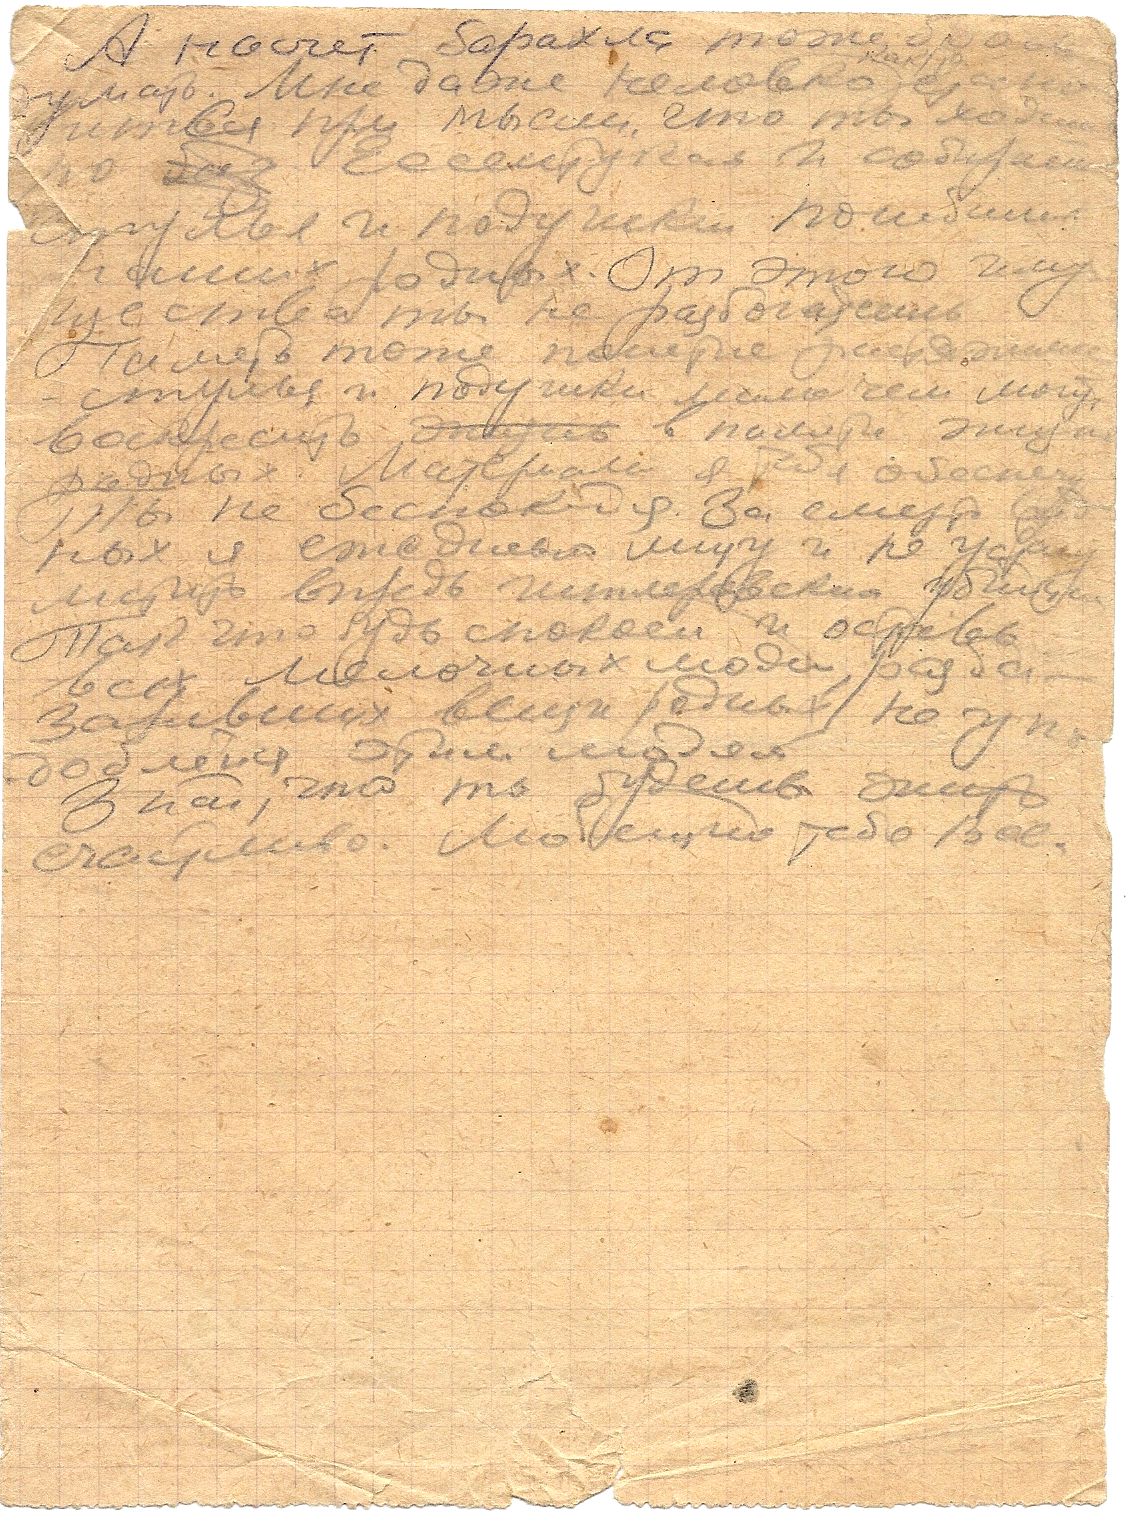 А насчет барахла тоже брось
думать. Мне даже неловко как то стано
вится при мысли, что ты ходишь
по Ессентукам и собираешь
стулья и подушки погибших
наших родных. От этого иму
щества ты не разбогатеешь
Память тоже
стулья и подушки мало чем могут
воскресить в памяти
родных. Материально я тебя обеспечу
Ты не беспокойся. За смерть род
ных я ежедневно мщу и не устану
мстить впредь гитлеровским убийцам
Так что будь спокоен и
всех мелочных людей, разба
заривших вещи родных, не упо
добляйся этим людям
Знай, что ты будешь жить
счастливо. Любящий тебя